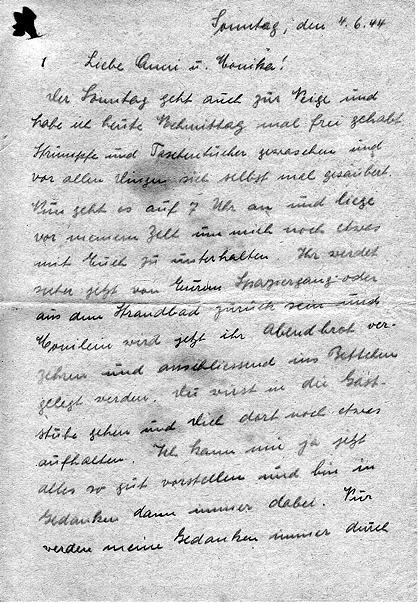 Sonntag, den 4.6.44
1 Liebe Anni u. Monika!
Der Sonntag geht auch zur Neige und
habe ich heute Nachmittag mal frei gehabt
Strümpfe und Taschentücher gewaschen und
vor allen Dingen sich selbst mal gesäubert.
Nun geht es auf 7 Uhr an und liege
vor meinem Zelt um mich noch etwas
mit Euch zu unterhalten. Ihr werdet
sicher jetzt von Eurem Spaziergang oder
aus dem Strandbad zurück sein und
Monilein wird jetzt ihr Abendbrot ver-
zehren und anschliessend ins Bettchen
gelegt werden. Du wirst in die Gast-
stube gehen und Dich dort noch etwas
aufhalten. Ich kann mir ja jetzt
alles so gut vorstellen und bin in
Gedanken dann immer dabei. Nur
werden meine Gedanken immer durch